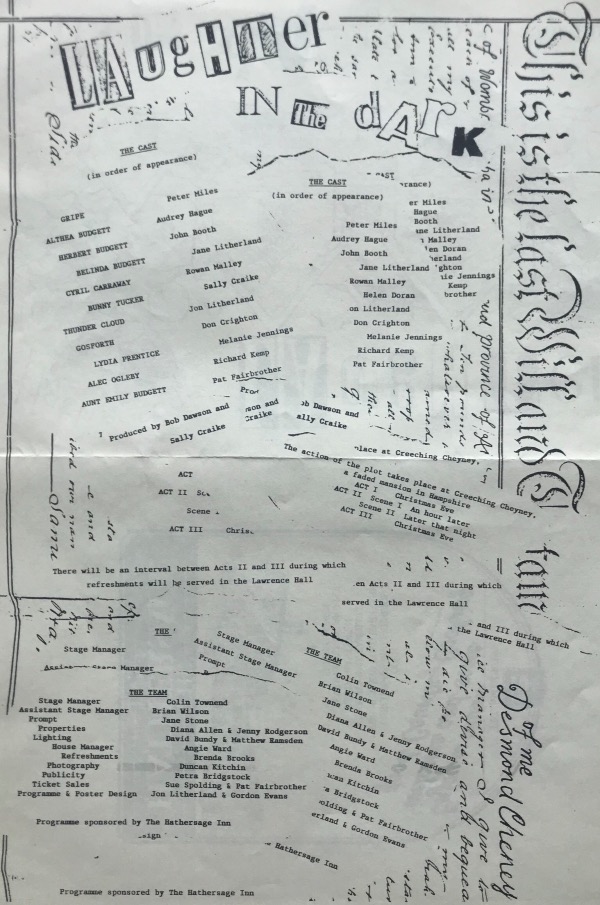 LAugHTer
IN The dArK
This is the last Will and
of me
Desmond Cheney
THE CAST
(in order of appearance)
GRIPE Peter Miles
ALTHEA BUDGETT Audrey Hague
HERBERT BUDGETT John Booth
BELINDA BUDGETT Jane Litherland
CYRIL CARRAWAY Rowan Malley
BUNNY TUCKER Sally Craike
THUNDER CLOUD Jon Litherland
GOSFORTH Don Crighton
LYDIA PRENTICE Melanie Jennings
ALEC OGLEBY Richard Kemp
AUNT EMILY BUDGETT Pat Fairbrother
Produced by Bob Dawson and
Sally Craike
THE CAST
(in order of appearance)
Peter Miles
Audrey Hague
John Booth
Jane Litherland
Rowan Malley
Helen Doran
on Litherland
Don Crighton
Melanie Jennings
Richard Kemp
Pat Fairbrother
rance)
er Miles
Hague
Booth
ne Litherland
Malley
en Doran
erland
ghton
ie Jennings
Kemp
brother
son and
Craike
ob Dawson and
ally Craike
place at Creeching Cheyney,
The action of the plot takes place at Creeching Cheyney,
a faded mansion in Hampshire
ACT I Christmas Eve
ACT II Scene I An hour later
Scene II Later that night
ACT III Christmas Eve
ACT
ACT II
Scene
ACT III Chris
There will be an interval between Acts II and III during which
refreshments will be served in the Lawrence Hall
en Acts II and III during which
served in the Lawrence Hall
and III during which
the Lawrence Hall
THE
Stage Manager
Assistant Stage Manager
Stage Manager
Assistant Stage Manager
Prompt
THE TEAM
Stage Manager Colin Townend
Assistant Stage Manager Brian Wilson
Prompt Jane Stone
Properties Diana Allen & Jenny Rodgerson
Lighting David Bundy & Matthew Ramsden
House Manager Angie Ward
Refreshments Brenda Brooks
Photography Duncan Kitchin
Publicity Petra Bridgstock
Ticket Sales Sue Spolding & Pat Fairbrother
Programme & Poster Design Jon Litherland & Gordon Evans
THE TEAM
Colin Townend
Brian Wilson
Jane Stone
Diana Allen & Jenny Rodgerson
David Bundy & Matthew Ramsden
Angie Ward
Brenda Brooks
ncan Kitchin
a Bridgstock
olding & Pat Fairbrother
erland & Gordon Evans
Programme sponsored by The Hathersage Inn
sign
Hathersage Inn
Programme sponsored by The Hathersage Inn